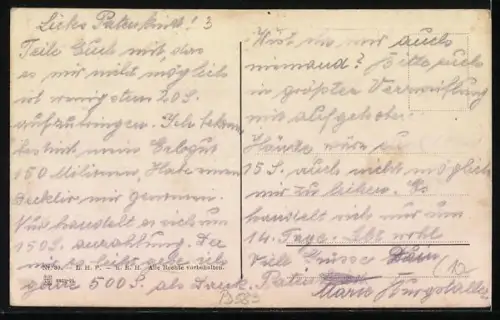 Liebe Patenkind! 3
Teile Euch mit, das
es mir nicht möglich
ist wenigsten 20 S.
aufzubringen. Ich bekomme
bestimt mein Erbgut
150 Milionen, Habe einen
Decktiv mir genommen.
Nun handelt es sich um
150 S. anzahlung. Der
mir es leiht gebe ich
gerne 500 S. als Dank.
L. H. P. - S. K. H. Alle Rechte vorbehalten.
13583
Hast du mir auch
niemand? Bitte euch
in größter Verzweiflung
mit aufgehobe.
Hände, wäre es
15 S. auch nicht möglich
mir zu leihen. Es
handelt sich nur um
14. Tage. Lebt wohl
Viele Grüsse Deine
Patin
Marie Burgstaller